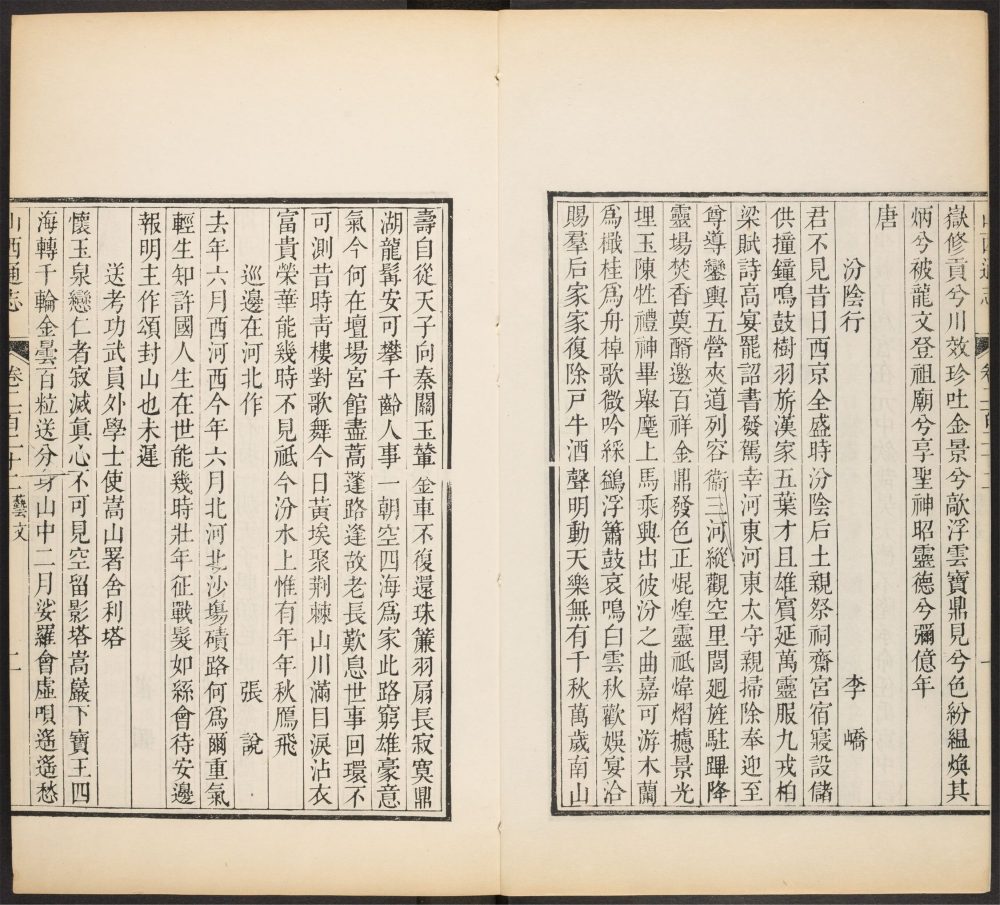 嶽修貢兮川效珍吐金景兮歊浮雲寶鼎見兮色紛縕煥其
炳兮被龍文登祖廟兮享聖神昭靈德兮彌億年
唐
汾陰行 李嶠
君不見昔日西京全盛時汾陰后土親祭祠齋宮宿寢設儲
供撞鐘鳴鼓樹羽旂漢家五葉才且雄賓延萬靈服九戎柏
梁賦詩高宴罷詔書發駕幸河東河東太守親掃除奉迎至
尊導鑾輿五營夾道列容衞三河縱觀空里閭廻旌駐蹕降
靈場焚香奠醑邀百祥金鼎發色正焜煌靈祇煒熠攄景光
埋玉陳牲禮神畢舉麾上馬乘輿出彼汾之曲嘉可游木蘭
爲檝桂爲舟棹歌微吟綵鷁浮簫鼓哀鳴白雲秋歡娛宴洽
賜羣后家家復除戸牛酒聲明動天樂無有千秋萬歲南山
壽自從天子向秦關玉輦金車不復還珠簾羽扇長寂寞鼎
湖龍髯安可攀千齡人事一朝空四海爲家此路窮雄豪意
氣今何在壇場宮館盡蒿蓬路逢故老長歎息世事回環不
可測昔時靑樓對歌舞今日黃埃聚荆棘山川滿目淚沾衣
富貴榮華能幾時不見祗今汾水上惟有年年秋鴈飛
巡邊在河北作 張說
去年六月西河西今年六月北河北沙塲磧路何爲爾重氣
輕生知許國人生在世能幾時壯年征戰髮如絲會待安邊
報明主作頌封山也未遲
送考功武員外學士使嵩山署舍利塔
懷玉泉戀仁者寂滅眞心不可見空留影塔嵩巖下寶王四
海轉千輪金曇百粒送分身山中二月娑羅會虛唄遙遙愁
山西通志 卷二百二十二 藝文 二